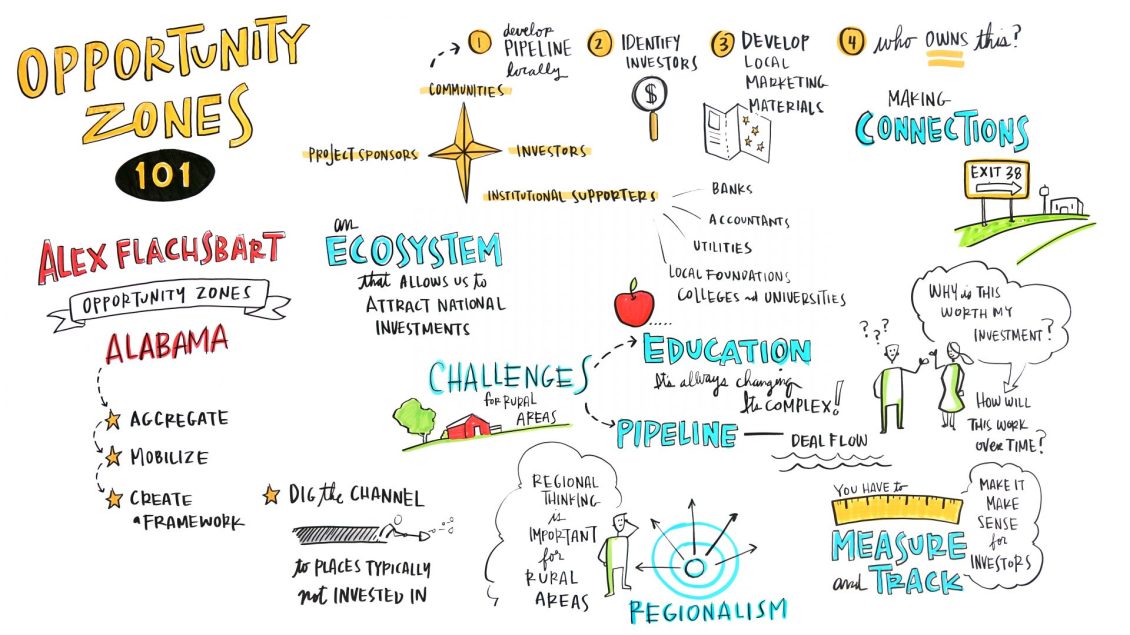 OPPORTUNITY
ZONES
101
ALEX FLACHSBART
OPPORTUNITY ZONES
ALABAMA
AGGREGATE
MOBILIZE
CREATE
a FRAMEWORK
DIG the CHANNEL
to PLACES TYPICALLY
not INVESTED IN
1 develop
PIPELINE
locally
2 IDENTIFY
INVESTORS
$
3 DEVELOP
LOCAL
MARKETING
MATERIALS
4 who OWNS this?
COMMUNITIES
PROJECT SPONSORS
INVESTORS
INSTITUTIONAL SUPPORTERS
BANKS
ACCOUNTANTS
UTILITIES
LOCAL FOUNDATIONS
COLLEGES and UNIVERSITIES
MAKING
CONNECTIONS
EXIT 38
an
ECOSYSTEM
that ALLOWS US to
ATTRACT NATIONAL
INVESTMENTS
CHALLENGES
for RURAL
AREAS
EDUCATION
It's always changing
Its COMPLEX!
PIPELINE
DEAL FLOW
???
WHY is THIS
WORTH MY
INVESTMENT?
HOW WILL
THIS WORK
OVER TIME?
REGIONAL
THINKING
is
IMPORTANT
for
RURAL
AREAS
REGIONALISM
YOU HAVE to
MEASURE
and TRACK
MAKE IT
MAKE
SENSE
for
INVESTORS